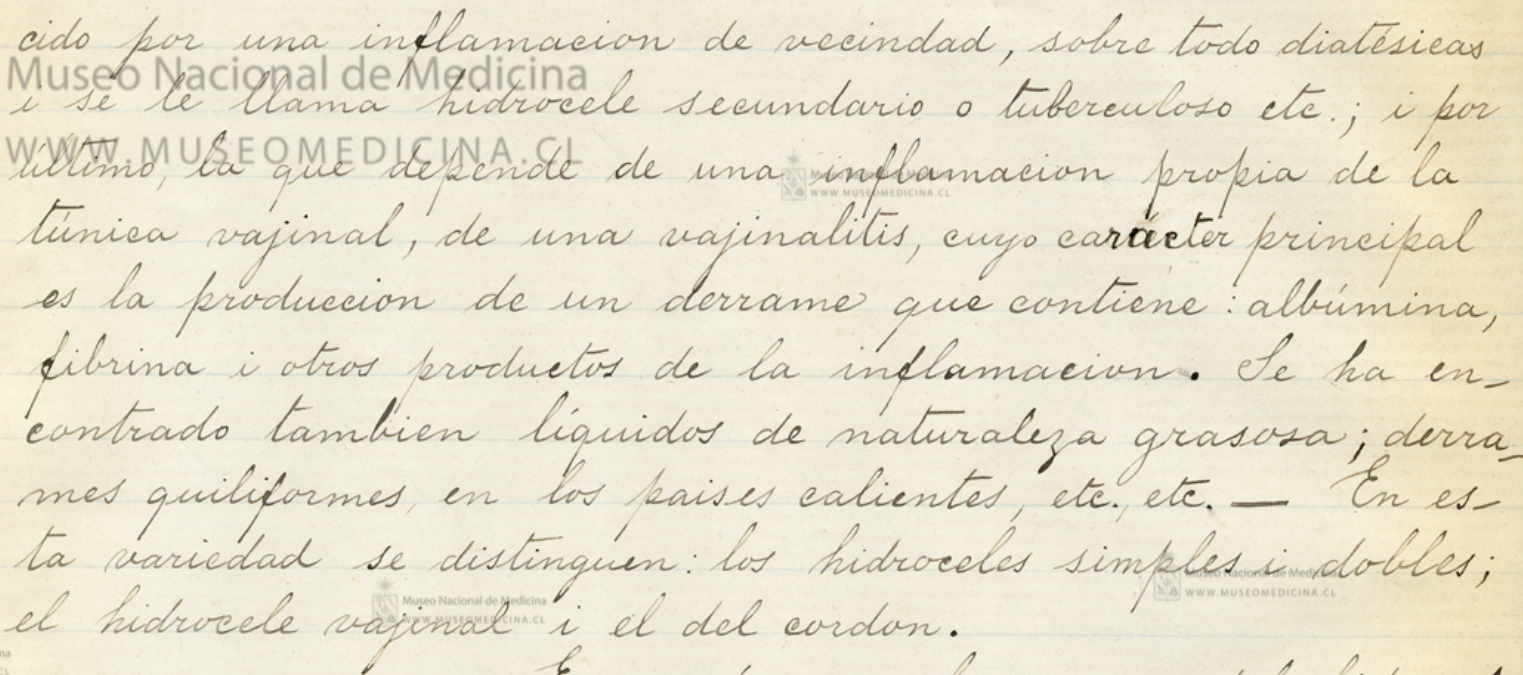 cido por una inflamacion de vecindad, sobre todo diatésicas
i se le llama hidrocele secundario o tuberculoso etc.; i por
último, la que depende de una inflamacion propia de la
túnica vajinal, de una vajinalitis, cuyo carácter principal
es la produccion de un derrame que contiene: albúmina,
fibrina i otros productos de la inflamacion. Se ha en-
contrado tambien líquidos de naturaleza grasosa; derra-
mes quiliformes, en los paises calientes, etc., etc. — En es-
ta variedad se distinguen: los hidroceles simples i dobles;
el hidrocele vajinal i el del cordon.
Museo Nacional de Medicina
WWW.MUSEOMEDICINA.CL
Museo Nacional de Medicina
WWW.MUSEOMEDICINA.CL
Museo Nacional de Medicina
WWW.MUSEOMEDICINA.CL
Museo Nacional de Medicina
WWW.MUSEOMEDICINA.CL